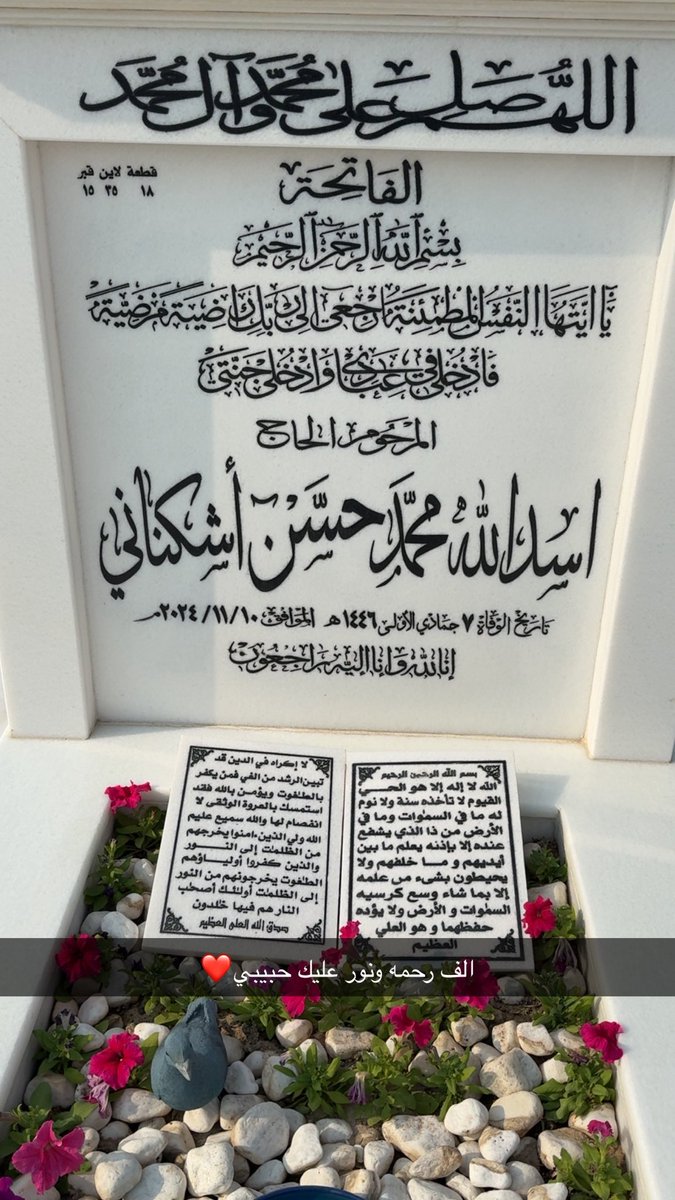 اللهم صل على محمد وآل محمد
قطعة لاين قبر
١٨ ٣٥ ١٥
الفاتحة
بسم الله الرحمن الرحيم
يا ايتها النفس المطمئنة ارجعي الى ربك راضية مرضية
فادخلي في عبادي وادخلي جنتي
المرحوم الحاج
اسد الله محمد حسن أشكناني
تاريخ الوفاة ٧ جمادي الأولى ١٤٤٦هـ الموافق ٢٠٢٤/١١/١٠م
انا لله وانا اليه راجعون
بسم الله الرحمن الرحيم
الله لا إله إلا هو الحي
القيوم لا تأخذه سنة ولا نوم
له ما في السموات وما في
الأرض من ذا الذي يشفع
عنده إلا بإذنه يعلم ما بين
أيديهم و ما خلفهم ولا
يحيطون بشيء من علمه
إلا بما شاء وسع كرسيه
السموات و الأرض ولا يؤده
حفظهما و هو العلي
العظيم
لا إكراه في الدين قد
تبين الرشد من الغي فمن يكفر
بالطغوت ويؤمن بالله فقد
استمسك بالعروة الوثقى لا
انفصام لها والله سميع عليم
الله ولي الذين ءامنوا يخرجهم
من الظلمت إلى النور
والذين كفروا أولياؤهم
الطغوت يخرجونهم من النور
إلى الظلمت أولئك أصحب
النار هم فيها خلدون
صدق الله العلي العظيم
الف رحمه ونور عليك حبيبي❤️